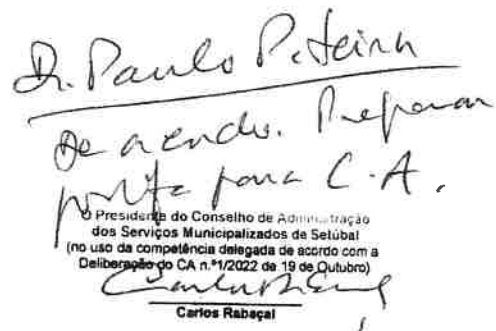 Dr. Paulo P. Teixeira
De acordo. Preparar
para C.A.
O Presidente do Conselho de Administração
dos Serviços Municipalizados de Setúbal
(no uso da competência delegada de acordo com a
Deliberação do CA n.º1/2022 de 19 de Outubro)
Carlos Rabaçal